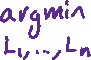 argmin
L₁,..,Lₙ